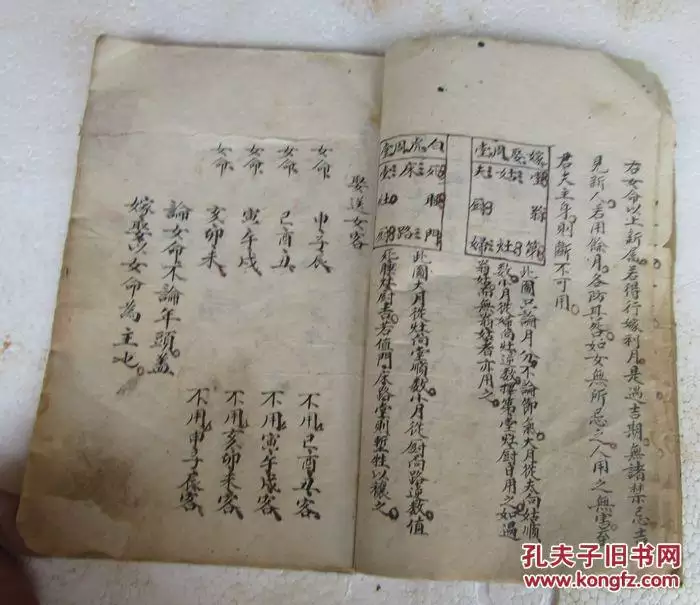 右女命以上新
若得行嫁利月是過吉期無諸禁忌
見新人若用餘月各防其咎如女無所忌之人用之無害
君夫主年則斷不可用
嫁娶周堂
夫 姑 堂
廚 翁
婦 灶 第
此圖只論月分不論節氣大月從夫向姑順
數小月從婦向灶逆數擇第堂灶廚日用之如遇
翁姑而無翁姑者亦用之
白虎周堂
灶 床
門
廚 路
此圖大月從灶向堂順數小月從廚向路逆數值
死睡灶廚吉若值門床路堂則
以禳之
娶送女客
女命 申子辰 不用巳酉丑客
女命 巳酉丑 不用寅午戌客
女命 寅午戌 不用亥卯未客
女命 亥卯未 不用申子辰客
論女命不論年頭蓋
嫁娶以女命為主也
孔夫子旧书网
www.kongfz.com